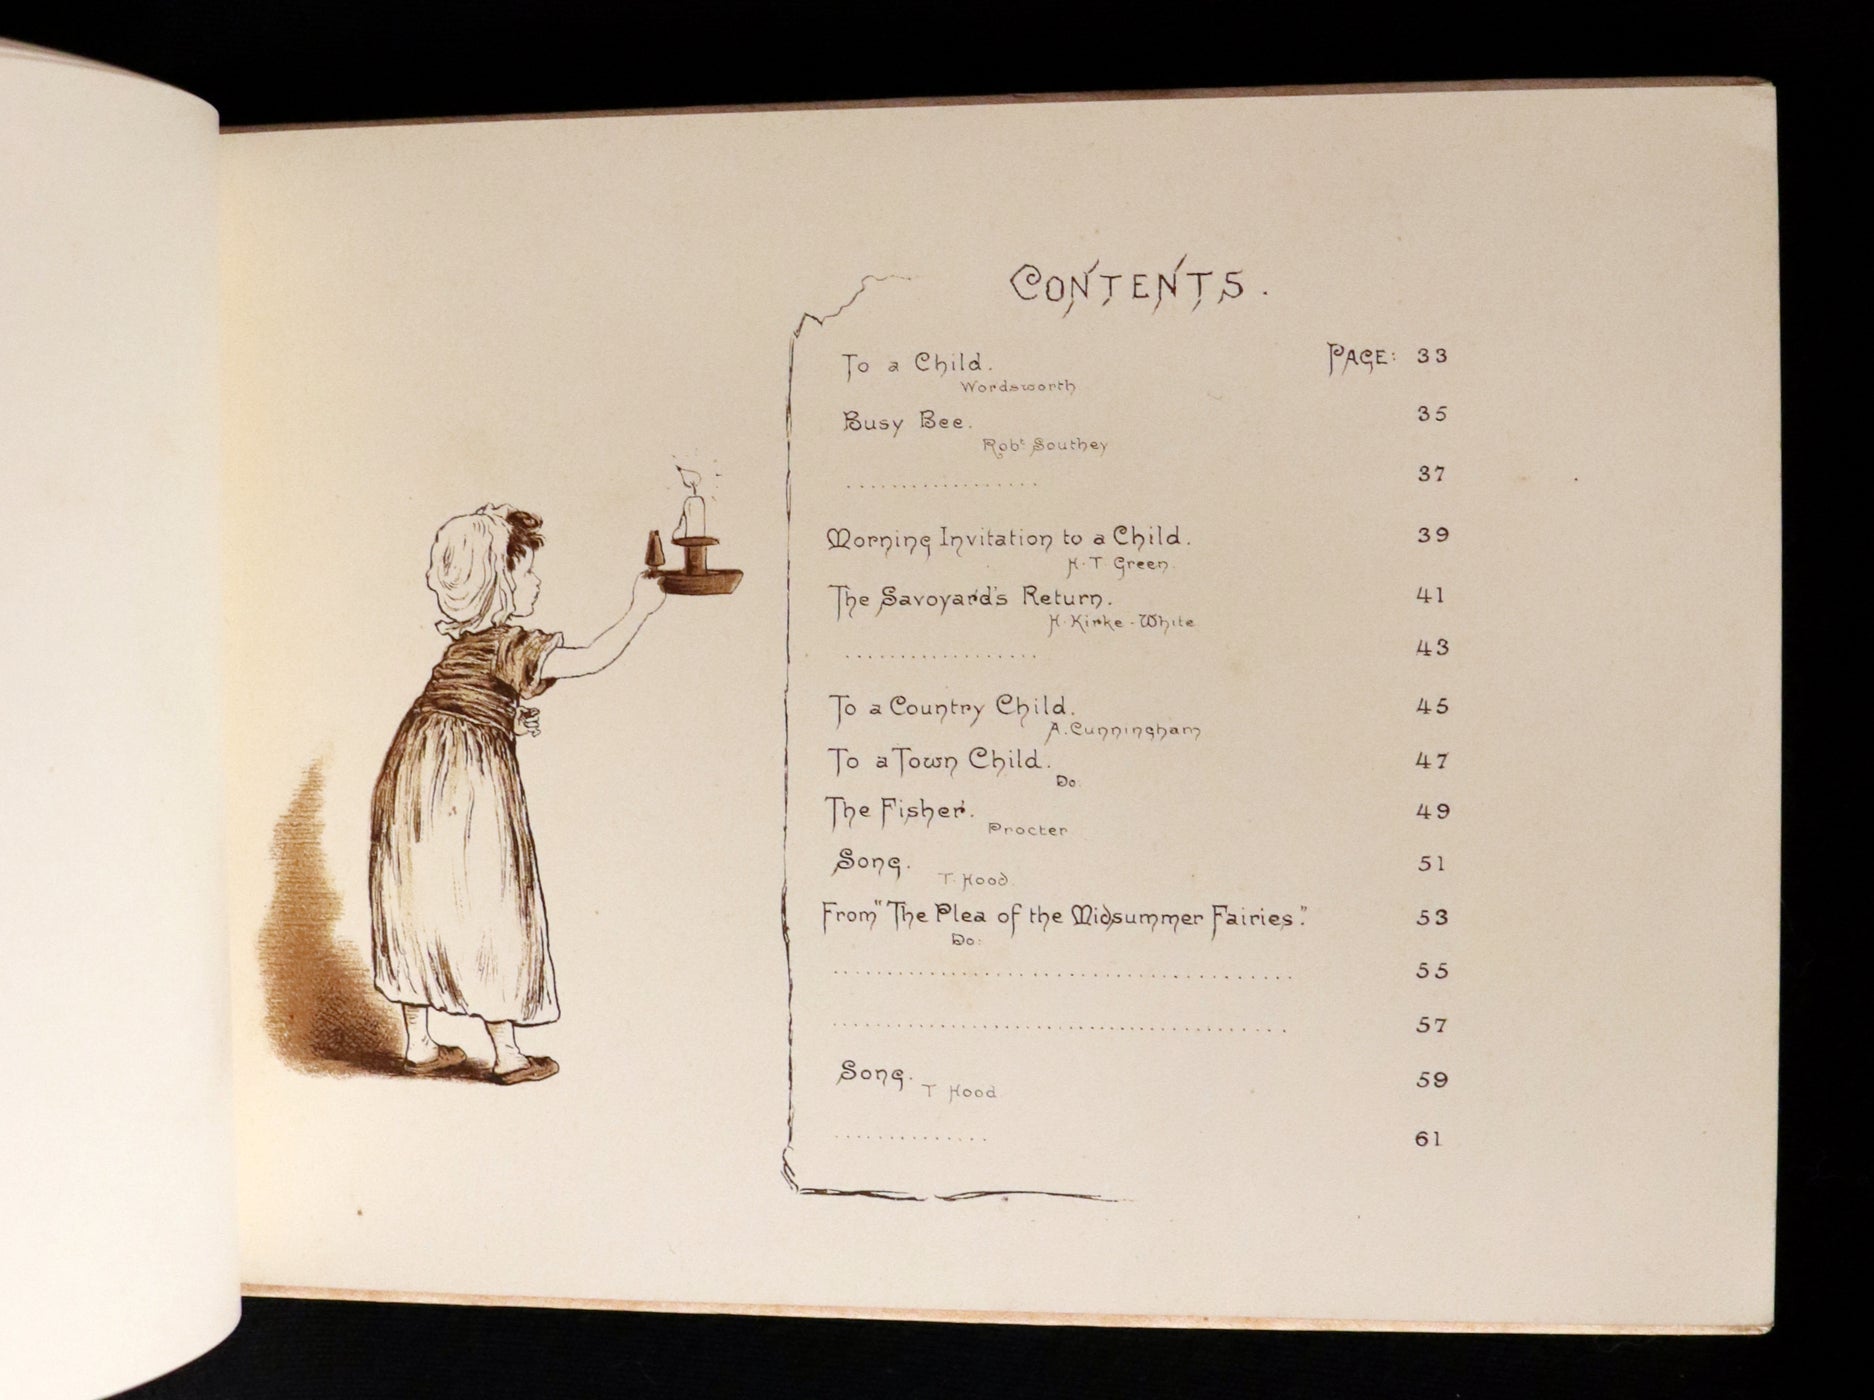 CONTENTS.
To a Child. PAGE: 33
Wordsworth
Busy Bee. 35
Robt Southey
.................. 37
Morning Invitation to a Child. 39
H. T. Green.
The Savoyard's Return. 41
H. Kirke-White
.................. 43
To a Country Child. 45
A. Cunningham
To a Town Child. 47
Do.
The Fisher. 49
Procter
Song. 51
T. Hood.
From "The Plea of the Midsummer Fairies." 53
Do:
........................................ 55
........................................ 57
Song. 59
T Hood
............... 61